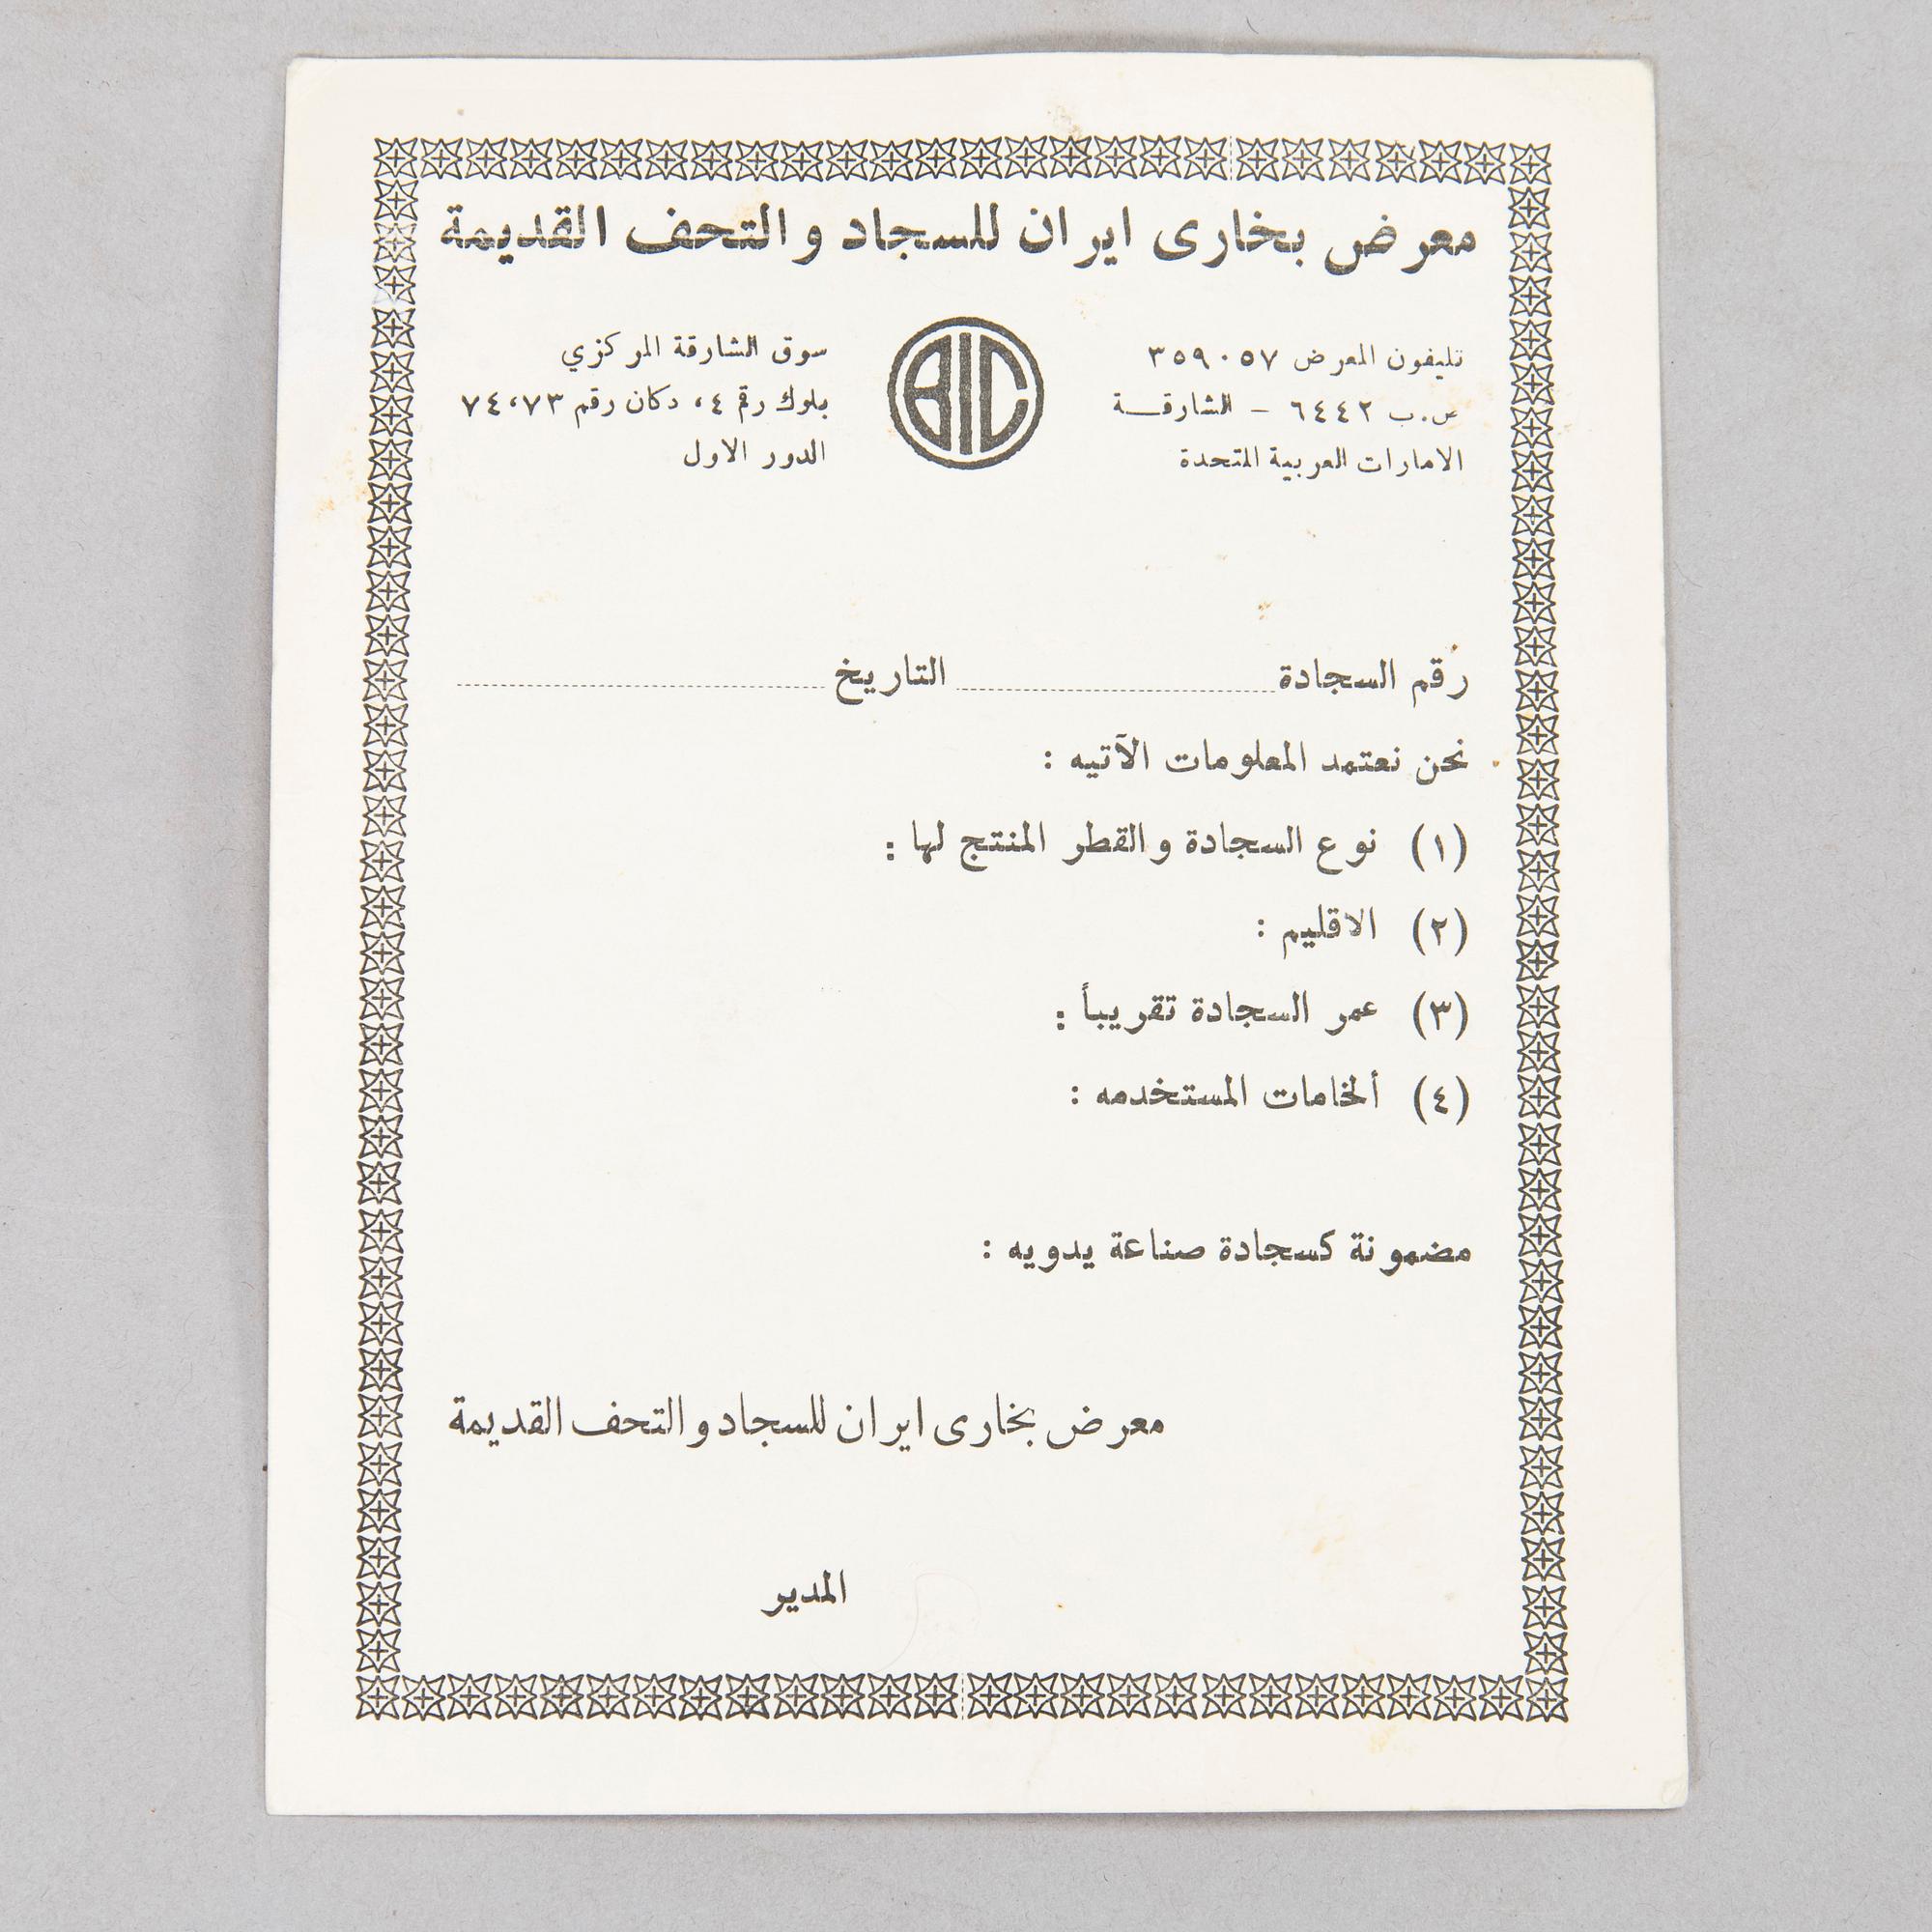 معرض بخارى ايران للسجاد والتحف القديمة
تليفون المعرض ٣٥٩٠٥٧
ص.ب ٦٤٤٢ – الشارقــة
الامارات العربية المتحدة
BIC
سوق الشارقة المركزي
بلوك رقم ٤، دكان رقم ٧٤،٧٣
الدور الاول
رقم السجادة التاريخ
نحن نعتمد المعلومات الآتيه :
(١) نوع السجادة والقطر المنتج لها :
(٢) الاقليم :
(٣) عمر السجادة تقريباً :
(٤) ألخامات المستخدمه :
مضمونة كسجادة صناعة يدويه :
معرض بخارى ايران للسجاد والتحف القديمة
المدير